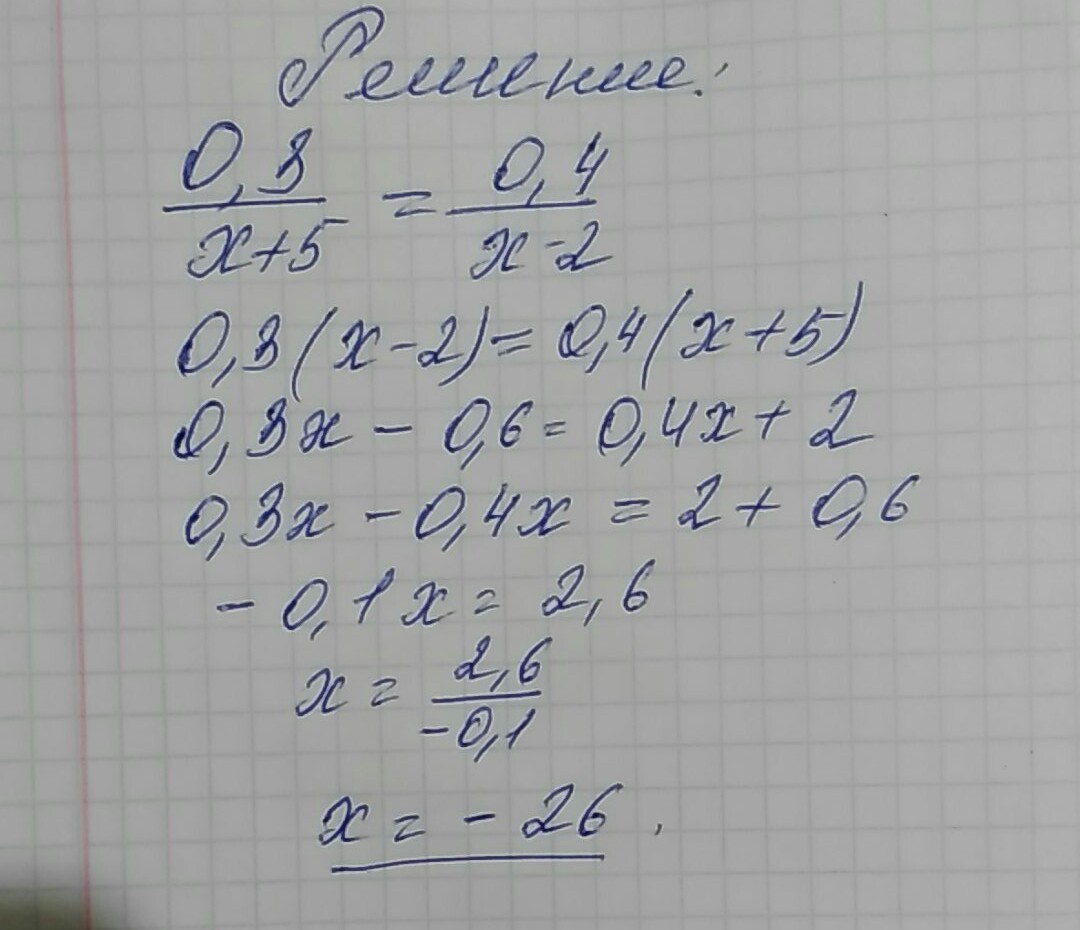 Решение:
0,3/x+5 = 0,4/x-2
0,3(x-2)=0,4(x+5)
0,3x - 0,6 = 0,4x + 2
0,3x - 0,4x = 2 + 0,6
- 0,1x = 2,6
x = 2,6/-0,1
x = - 26.